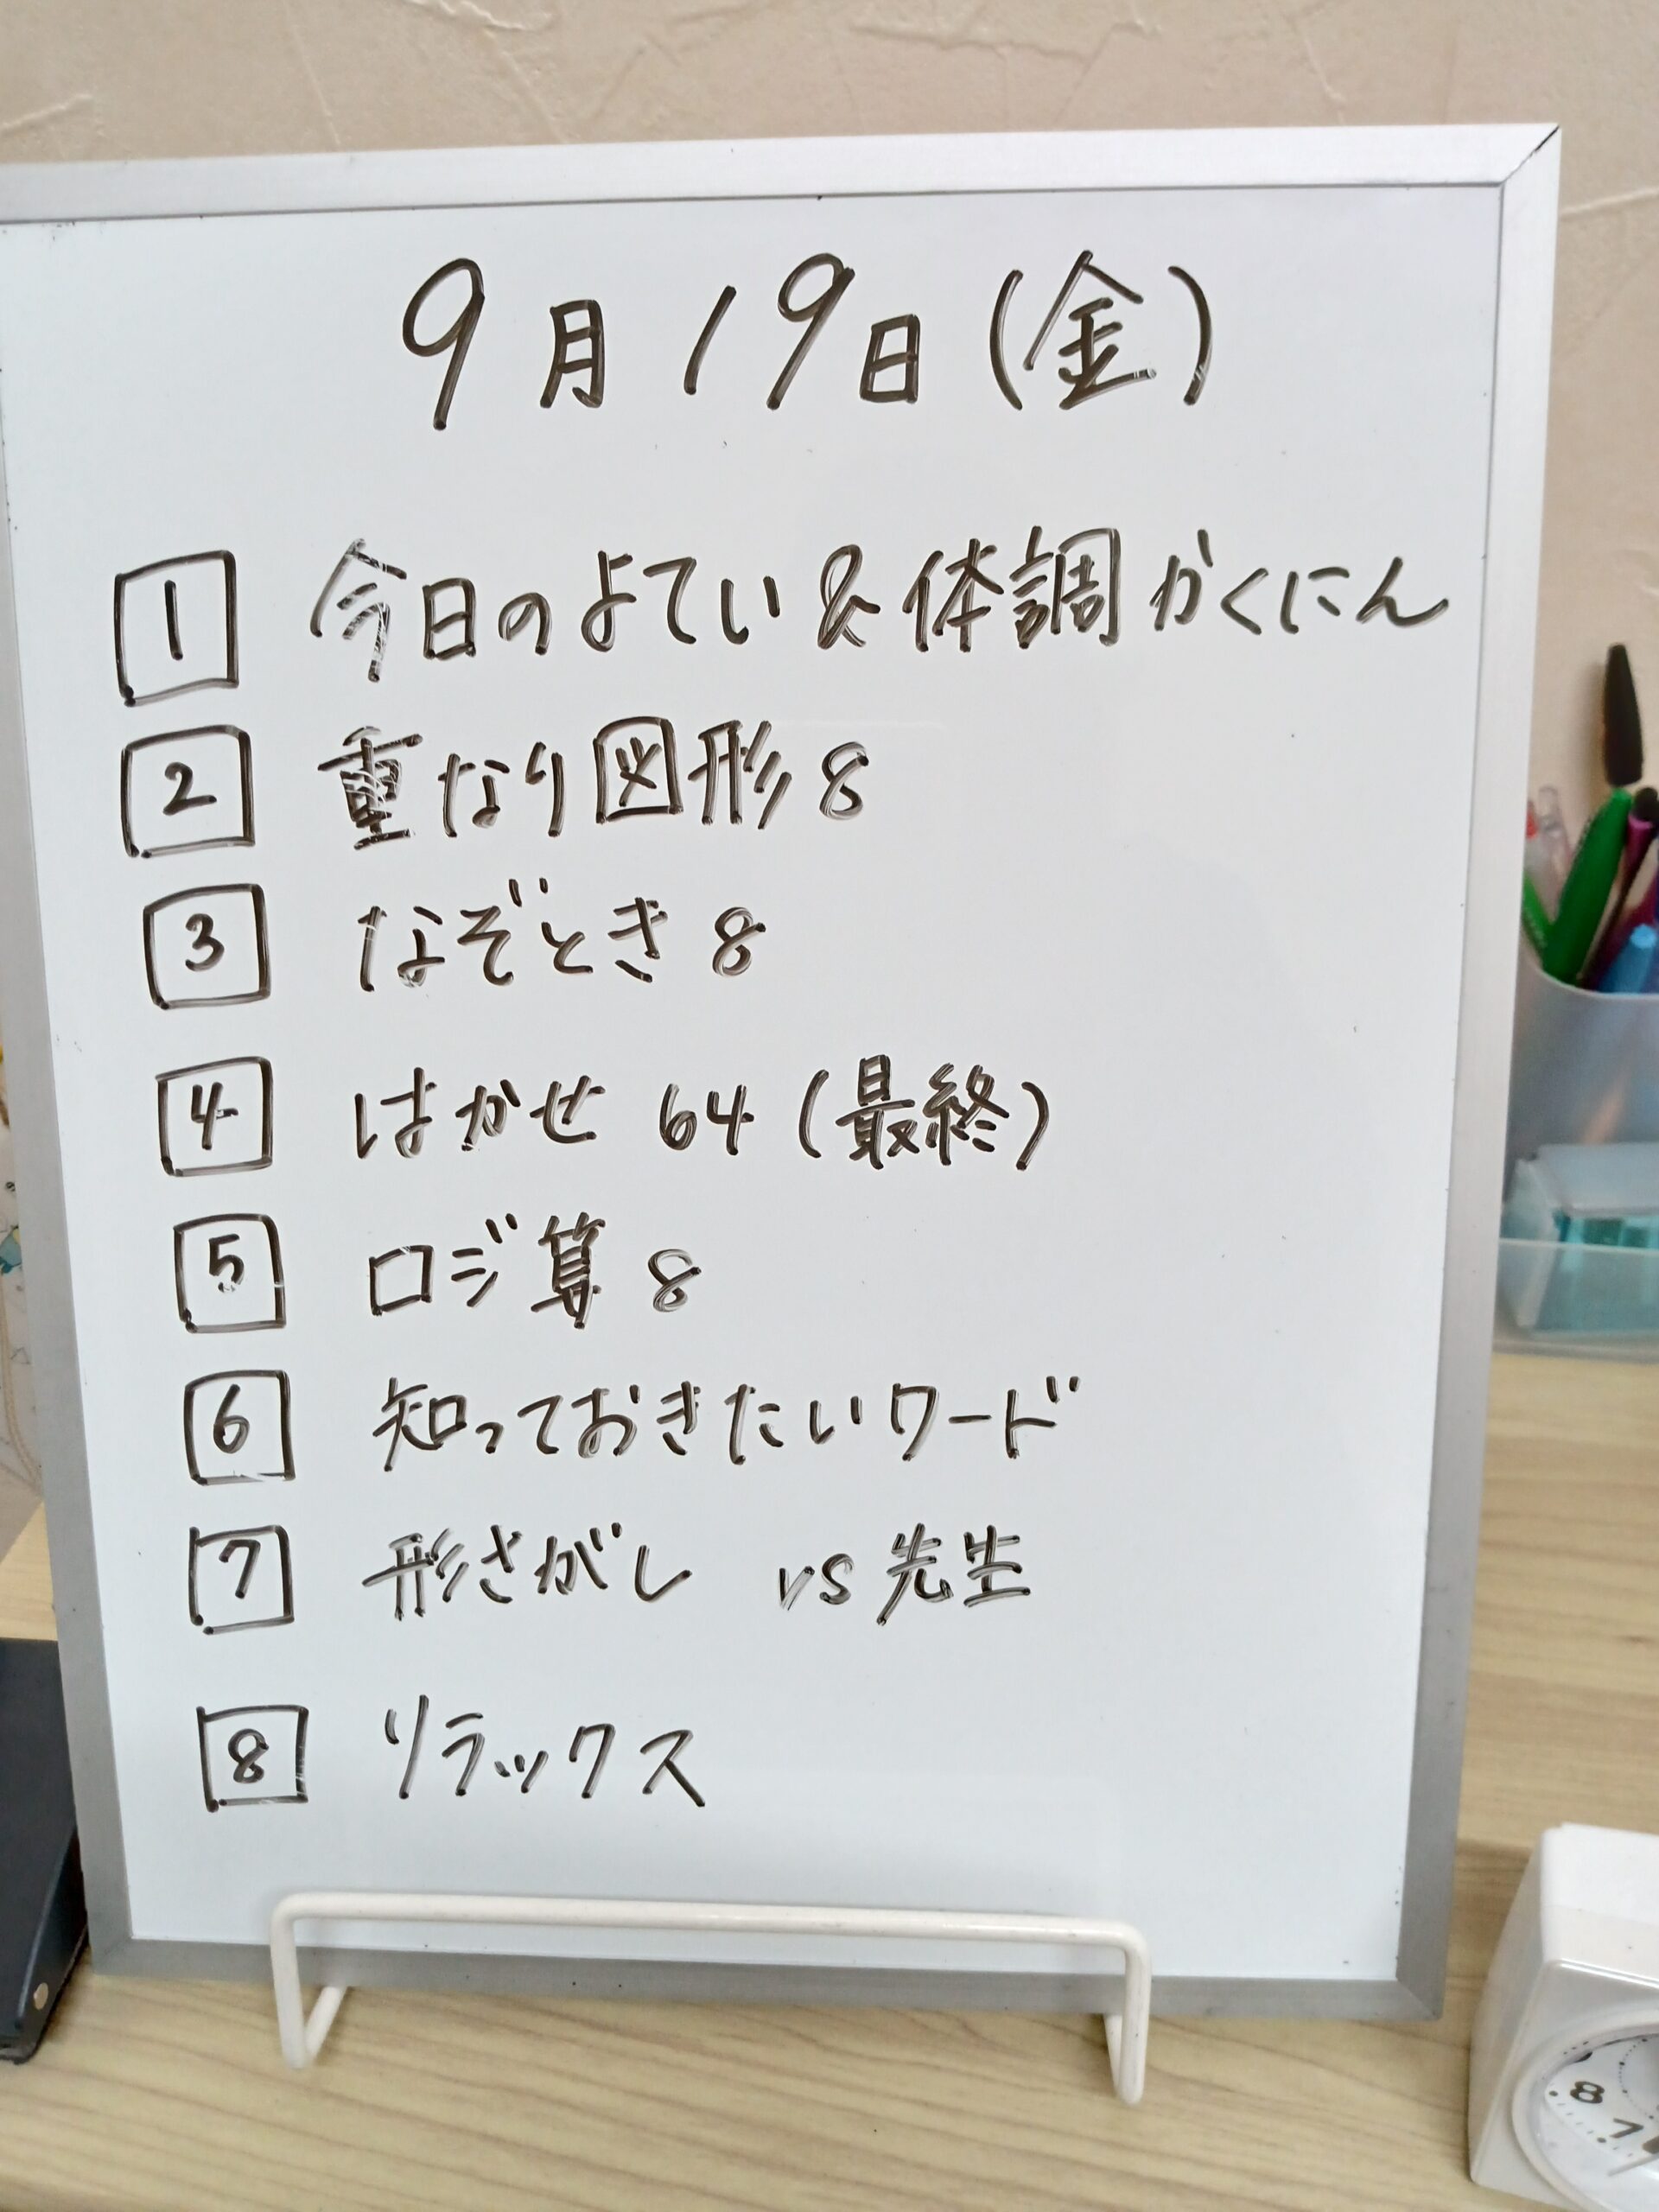 9月19日(金)
1 今日のよてい&体調かくにん
2 重なり図形8
3 なぞとき8
4 はかせ64(最終)
5 ロジ算8
6 知っておきたいワード
7 形さがし vs先生
8 リラックス
8
7